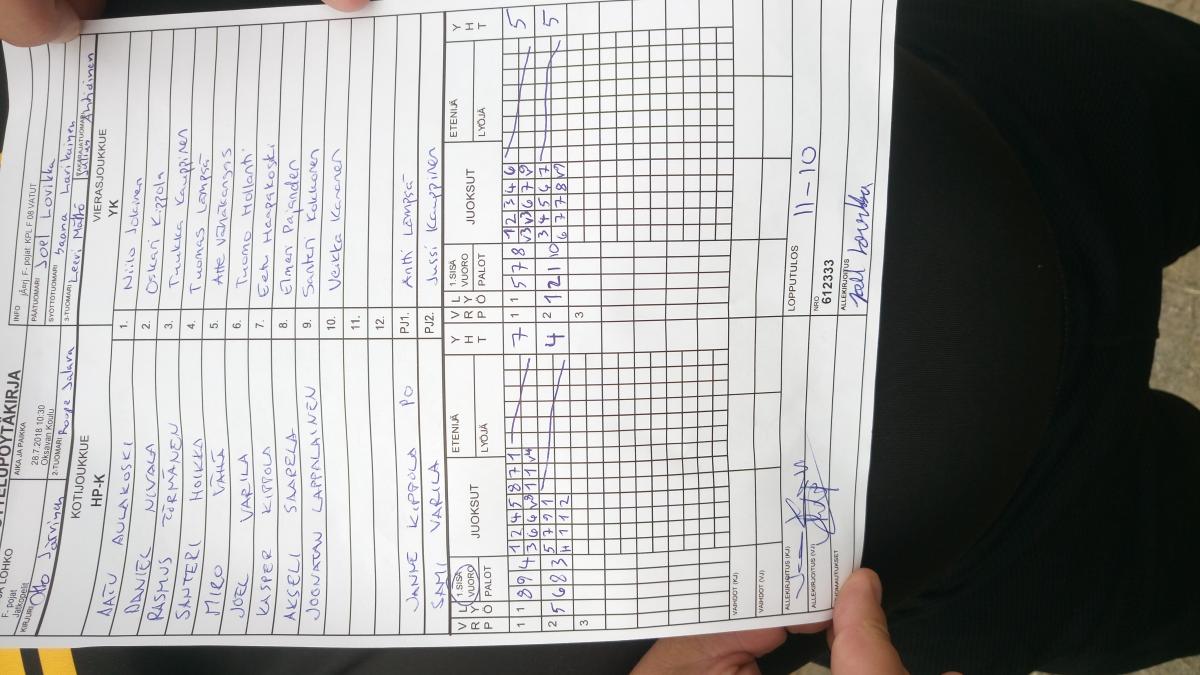 OTTELUPÖYTÄKIRJA
LOHKO
F. pojat
Jatkopelit
AIKA JA PAIKKA
28.7.2018 10:30
Oksavan Koulu
INFO JÄRJ. F- pojat: KPL F 08 VATUT
PÄÄTUOMARI Joel Lovikka
KIRJURI Otto Järvinen
2-TUOMARI Roope Salava
SYÖTTÖTUOMARI Saana Larikainen
3-TUOMARI Leevi Mattö
TAKARAJATUOMARI Julius Anhidinen
KOTIJOUKKUE
HP-K
VIERASJOUKKUE
YK
AATU AULAKOSKI 1. Niilo Jokinen
DANIEL NIVALA 2. Oskari Kippola
RASMUS TÖRMÄNEN 3. Truukka Kauppinen
SANTERI HOIKKA 4. Tuomas Lämpsä
MIRO VÄHÄ 5. Atte Vanhakangas
JOEL VARILA 6. Tuomo Hollanti
KASPER KIPPOLA 7. Eetu Haapakoski
AKSELI SAARELA 8. Elmer Pajanden
JOONATAN LAPPALAINEN 9. Santeri Kokkonen
10. Veikka Kananen
11.
12.
JANNE KIPPOLA PO PJ1. Antti Lämpsä
SAMI VARILA PJ2. Jussi Kauppinen
VRP LYÖ 1.SISÄ VUORO PALOT JUOKSUT ETENIJÄ LYÖJÄ YHT VRP LYÖ 1.SISÄ VUORO PALOT JUOKSUT ETENIJÄ LYÖJÄ YHT
1 1 8 9 4 1 2 4 5 8 7 1 7 1 1 5 7 8 1 2 3 4 6 5
2 5 6 8 3 5 7 9 1 4 2 1 2 1 10 3 4 5 6 7 5
3 3
VAIHDOT (KJ)
VAIHDOT (VJ)
LOPPUTULOS 11-10
ALLEKIRJOITUS (KJ)
ALLEKIRJOITUS (VJ)
NRO
612333
HUOMAUTUKSET
ALLEKIRJOITUS
Joel Lovikka